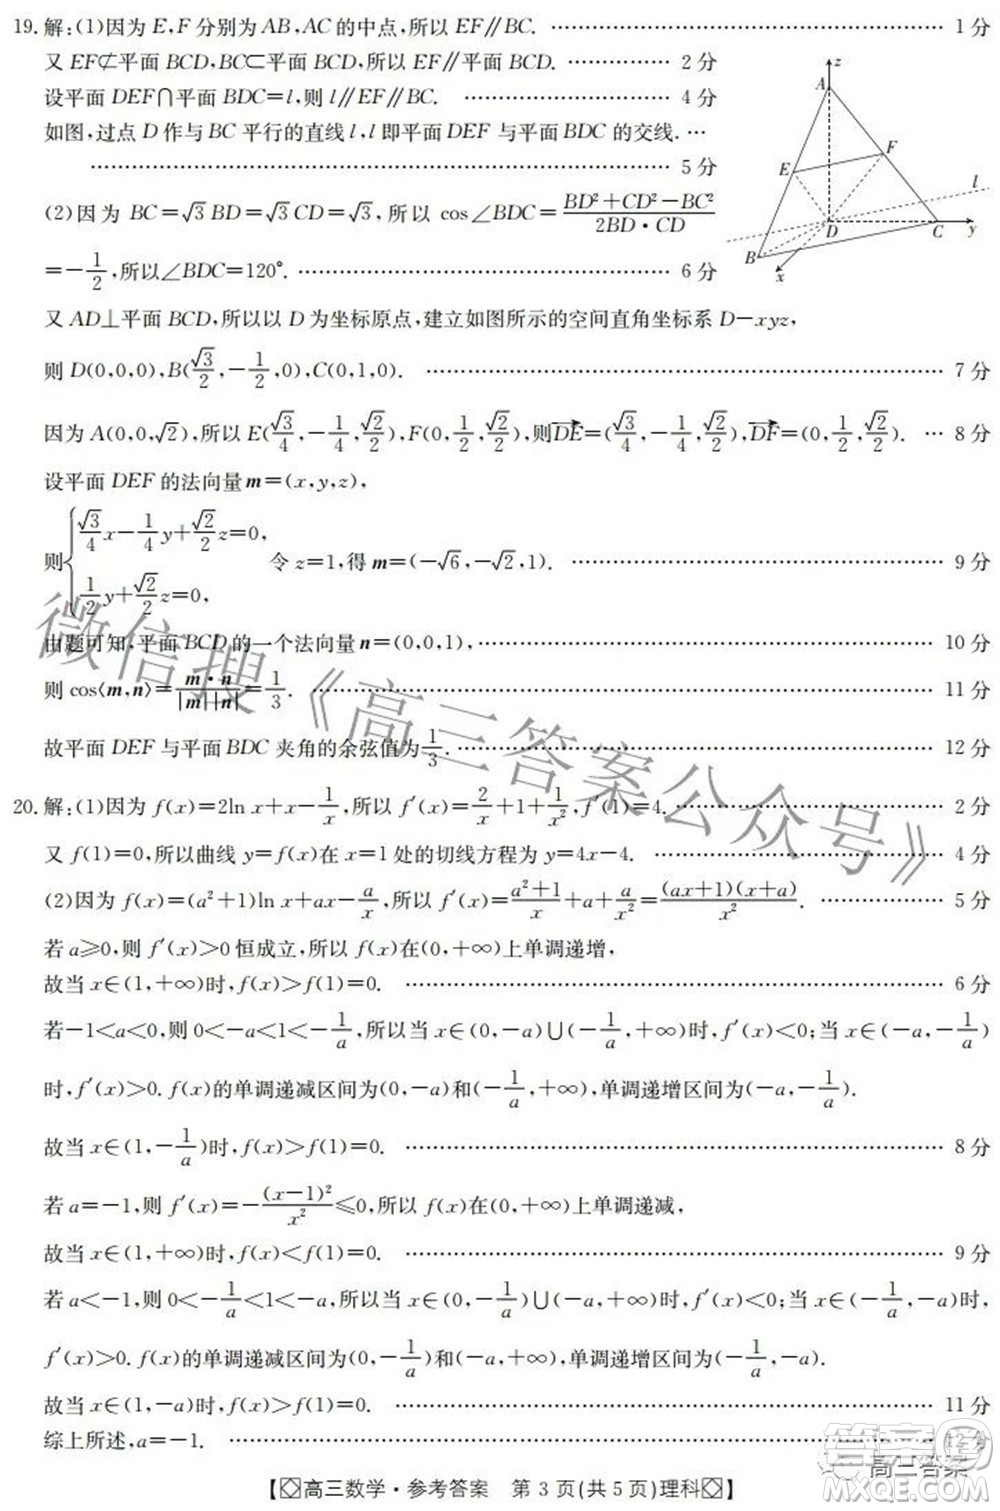 19. 解:(1)因为 E,F 分别为 AB,AC 的中点,所以 EF∥BC. ………… 1 分
又 EF⊄平面 BCD,BC⊂平面 BCD,所以 EF∥平面 BCD. ………… 2 分
设平面 DEF∩平面 BDC=l,则 l∥EF∥BC. ………… 4 分
如图,过点 D 作与 BC 平行的直线 l,l 即平面 DEF 与平面 BDC 的交线. …
………… 5 分
z
A
E
F
l
D
C
y
B
x
(2)因为 BC=√3BD=√3CD=√3,所以 cos∠BDC=(BD²+CD²-BC²)/(2BD·CD)
=-1/2,所以∠BDC=120°. ………… 6 分
又 AD⊥平面 BCD,所以以 D 为坐标原点,建立如图所示的空间直角坐标系 D-xyz,
则 D(0,0,0),B(√3/2,-1/2,0),C(0,1,0). ………… 7 分
因为 A(0,0,√2),所以 E(√3/4,-1/4,√2/2),F(0,1/2,√2/2),则DE→=(√3/4,-1/4,√2/2),DF→=(0,1/2,√2/2). … 8 分
设平面 DEF 的法向量 m=(x,y,z),
则{√3/4x-1/4y+√2/2z=0, 1/2y+√2/2z=0, 令 z=1,得 m=(-√6,-√2,1). ………… 9 分
由题可知,平面 BCD 的一个法向量 n=(0,0,1), ………… 10 分
则 cos⟨m,n⟩=m·n/(|m||n|)=1/3. ………… 11 分
故平面 DEF 与平面 BDC 夹角的余弦值为1/3. ………… 12 分
20. 解:(1)因为 f(x)=2ln x+x-1/x,所以 f′(x)=2/x+1+1/x²,f′(1)=4. ………… 2 分
又 f(1)=0,所以曲线 y=f(x)在 x=1 处的切线方程为 y=4x-4. ………… 4 分
(2)因为 f(x)=(a²+1)ln x+ax-a/x,所以 f′(x)=(a²+1)/x+a+a/x²=(ax+1)(x+a)/x². ………… 5 分
若 a≥0,则 f′(x)>0 恒成立,所以 f(x)在(0,+∞)上单调递增,
故当 x∈(1,+∞)时,f(x)>f(1)=0. ………… 6 分
若-1<a<0,则 0<-a<1<-1/a,所以当 x∈(0,-a)∪(-1/a,+∞)时,f′(x)<0;当 x∈(-a,-1/a)
时,f′(x)>0. f(x)的单调递减区间为(0,-a)和(-1/a,+∞),单调递增区间为(-a,-1/a).
故当 x∈(1,-1/a)时,f(x)>f(1)=0. ………… 8 分
若 a=-1,则 f′(x)=-(x-1)²/x²≤0,所以 f(x)在(0,+∞)上单调递减,
故当 x∈(1,+∞)时,f(x)<f(1)=0. ………… 9 分
若 a<-1,则 0<-1/a<1<-a,所以当 x∈(0,-1/a)∪(-a,+∞)时,f′(x)<0;当 x∈(-1/a,-a)时,
f′(x)>0. f(x)的单调递减区间为(0,-1/a)和(-a,+∞),单调递增区间为(-1/a,-a).
故当 x∈(1,-a)时,f(x)>f(1)=0. ………… 11 分
综上所述,a=-1. ………… 12 分
【高三数学·参考答案 第 3 页(共 5 页)理科】
微信搜《高三答案公众号》
高三答案